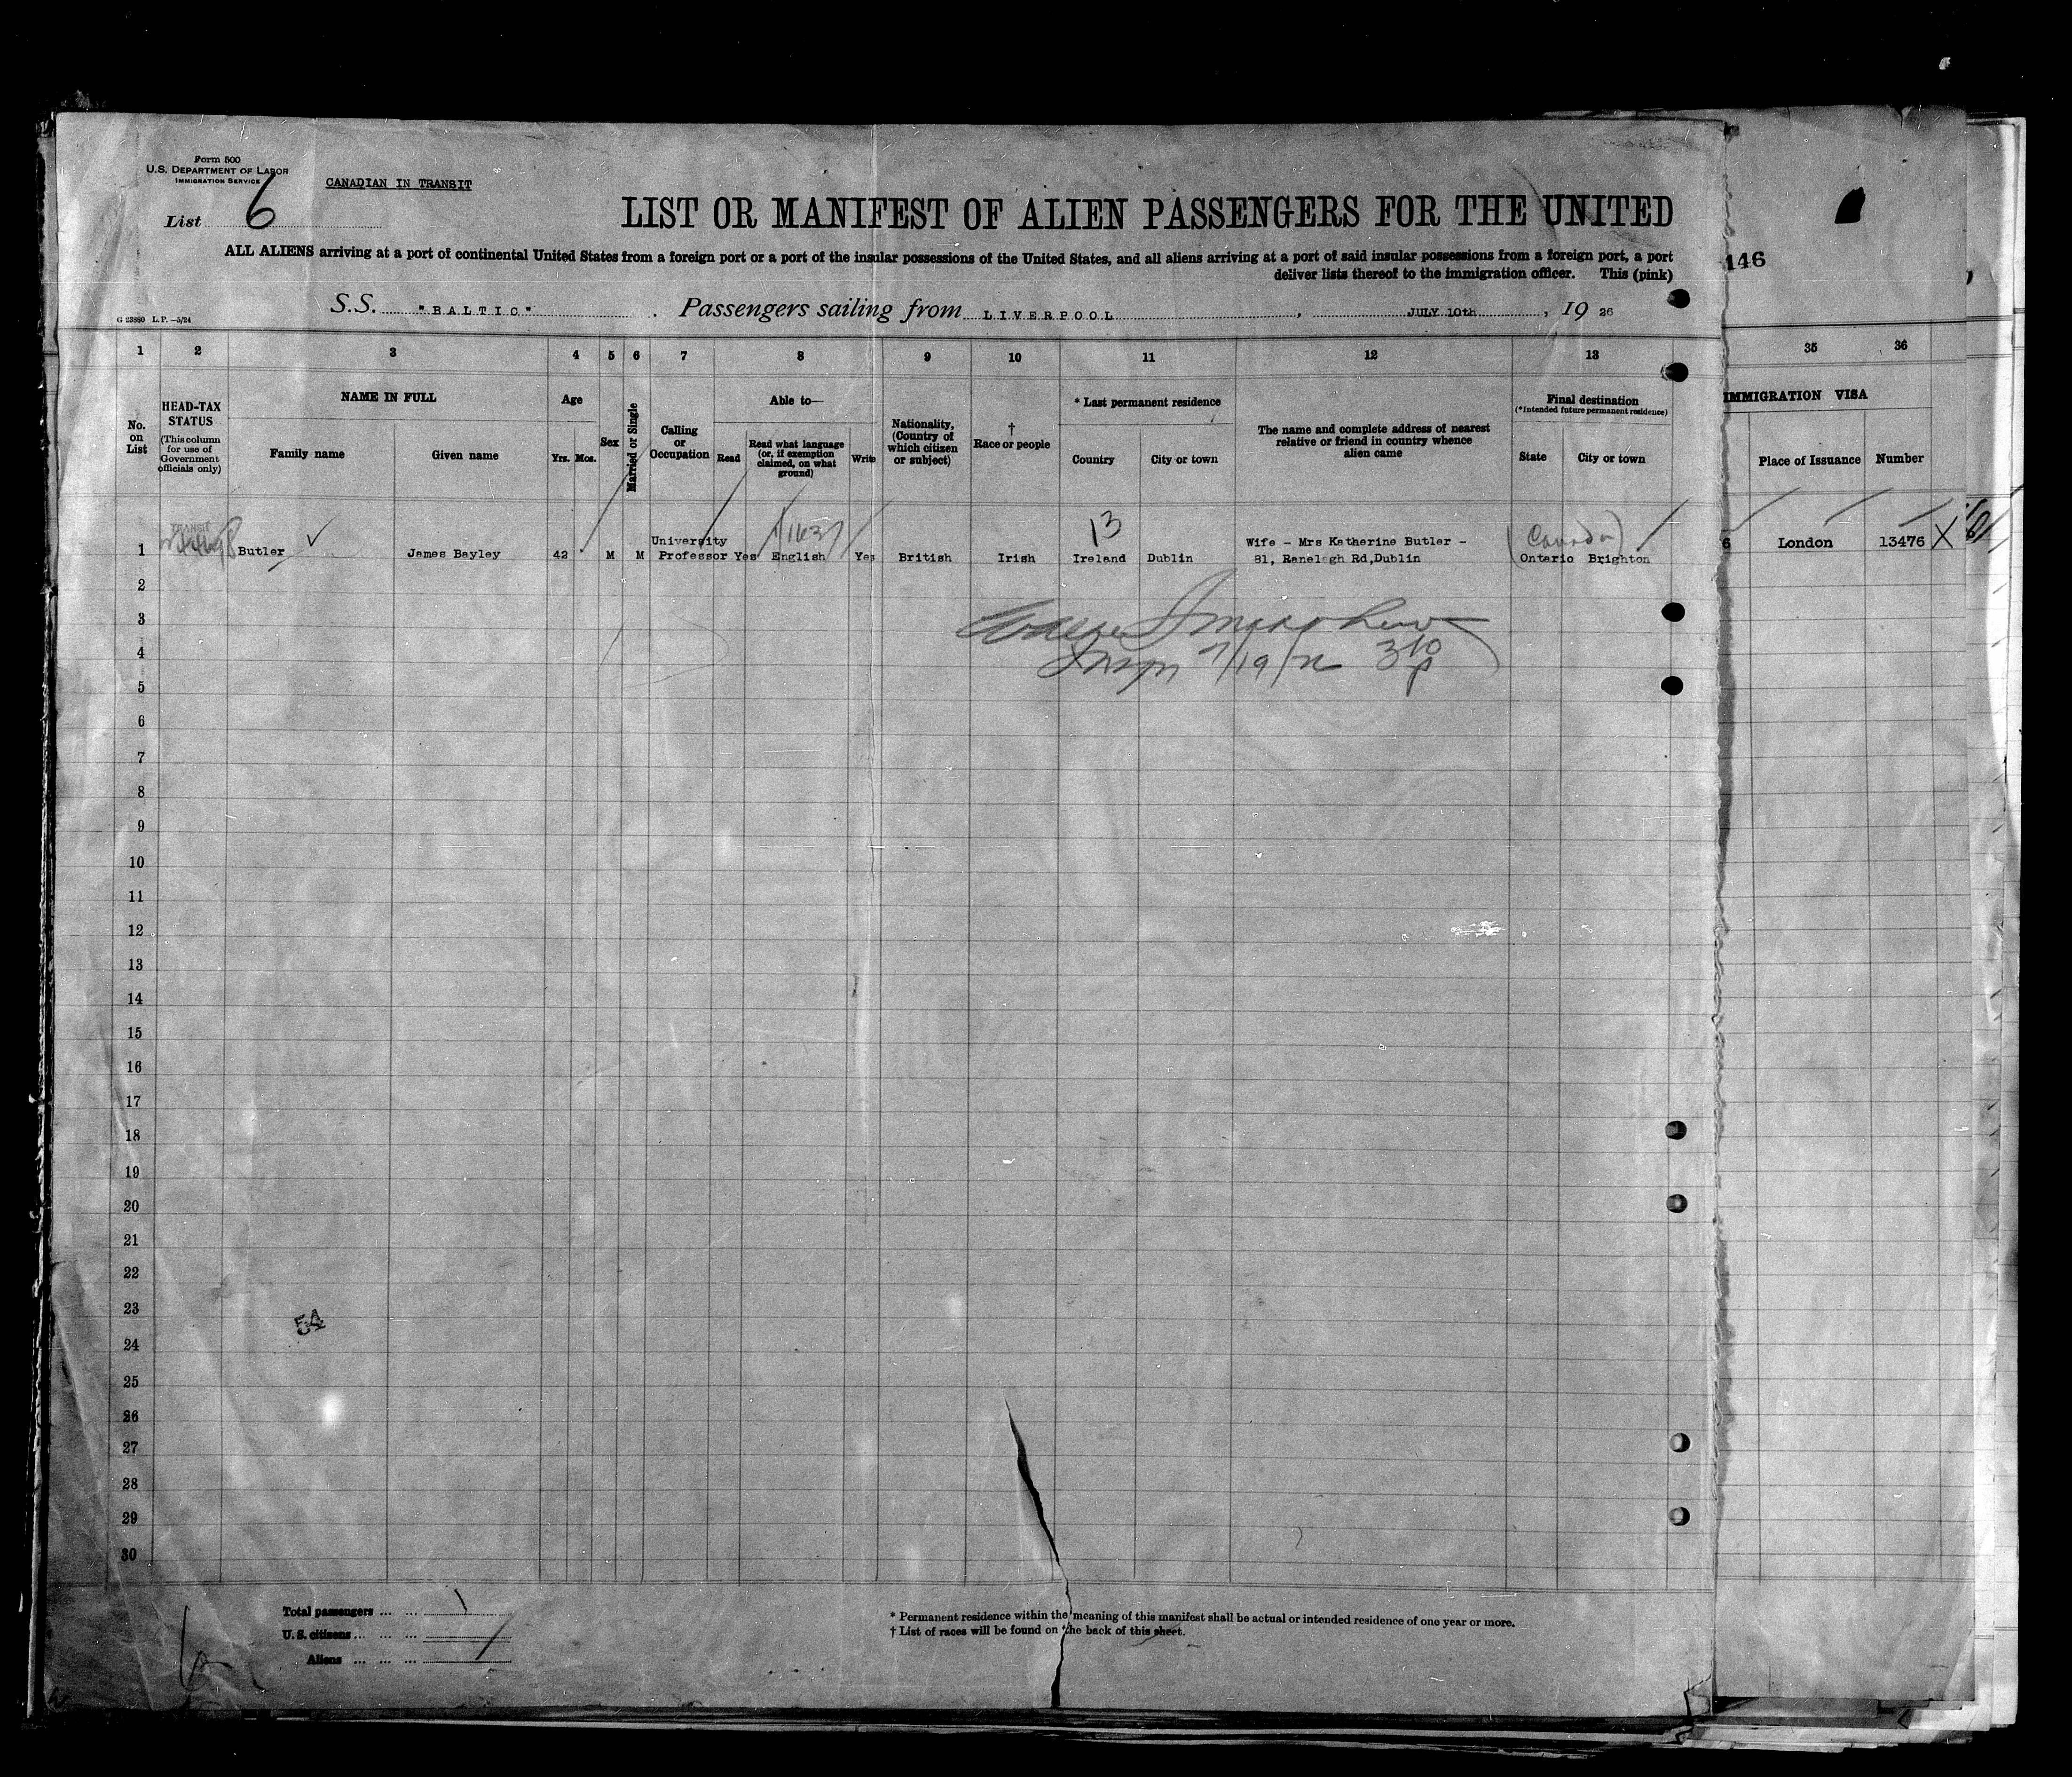 Form 500
U.S. DEPARTMENT OF LABOR
IMMIGRATION SERVICE
CANADIAN IN TRANSIT
List 6
LIST OR MANIFEST OF ALIEN PASSENGERS FOR THE UNITED
ALL ALIENS arriving at a port of continental United States from a foreign port or a port of the insular possessions of the United States, and all aliens arriving at a port of said insular possessions from a foreign port, a port
deliver lists thereof to the immigration officer. This (pink)
146
S.S. "BALTIC" . Passengers sailing from LIVERPOOL , JULY 10th , 19 26
G 23880 L.P.—5/24
1 2 3 4 5 6 7 8 9 10 11 12 13 35 36
No. on List
HEAD-TAX STATUS
(This column for use of Government officials only)
NAME IN FULL
Family name
Given name
Age
Yrs. Mos.
Sex
Married or Single
Calling or Occupation
Able to—
Read
Read what language (or, if exemption claimed, on what ground)
Write
Nationality, (Country of which citizen or subject)
† Race or people
* Last permanent residence
Country
City or town
The name and complete address of nearest relative or friend in country whence alien came
Final destination
(*Intended future permanent residence)
State
City or town
IMMIGRATION VISA
Place of Issuance
Number
TRANSIT
13
(Canada)
1 Butler James Bayley 42 M M University Professor Yes English Yes British Irish Ireland Dublin Wife - Mrs Katherine Butler - 81, Ranelagh Rd,Dublin Ontario Brighton 6 London 13476 X
2
3
4
7/19/26 3 10 P
5
6
7
8
9
10
11
12
13
14
15
16
17
18
19
20
21
22
23
54
24
25
26
27
28
29
30
Total passengers ... ... 1
U.S. citizens ... ... ...
Aliens ... ... ...
* Permanent residence within the meaning of this manifest shall be actual or intended residence of one year or more.
† List of races will be found on the back of this sheet.